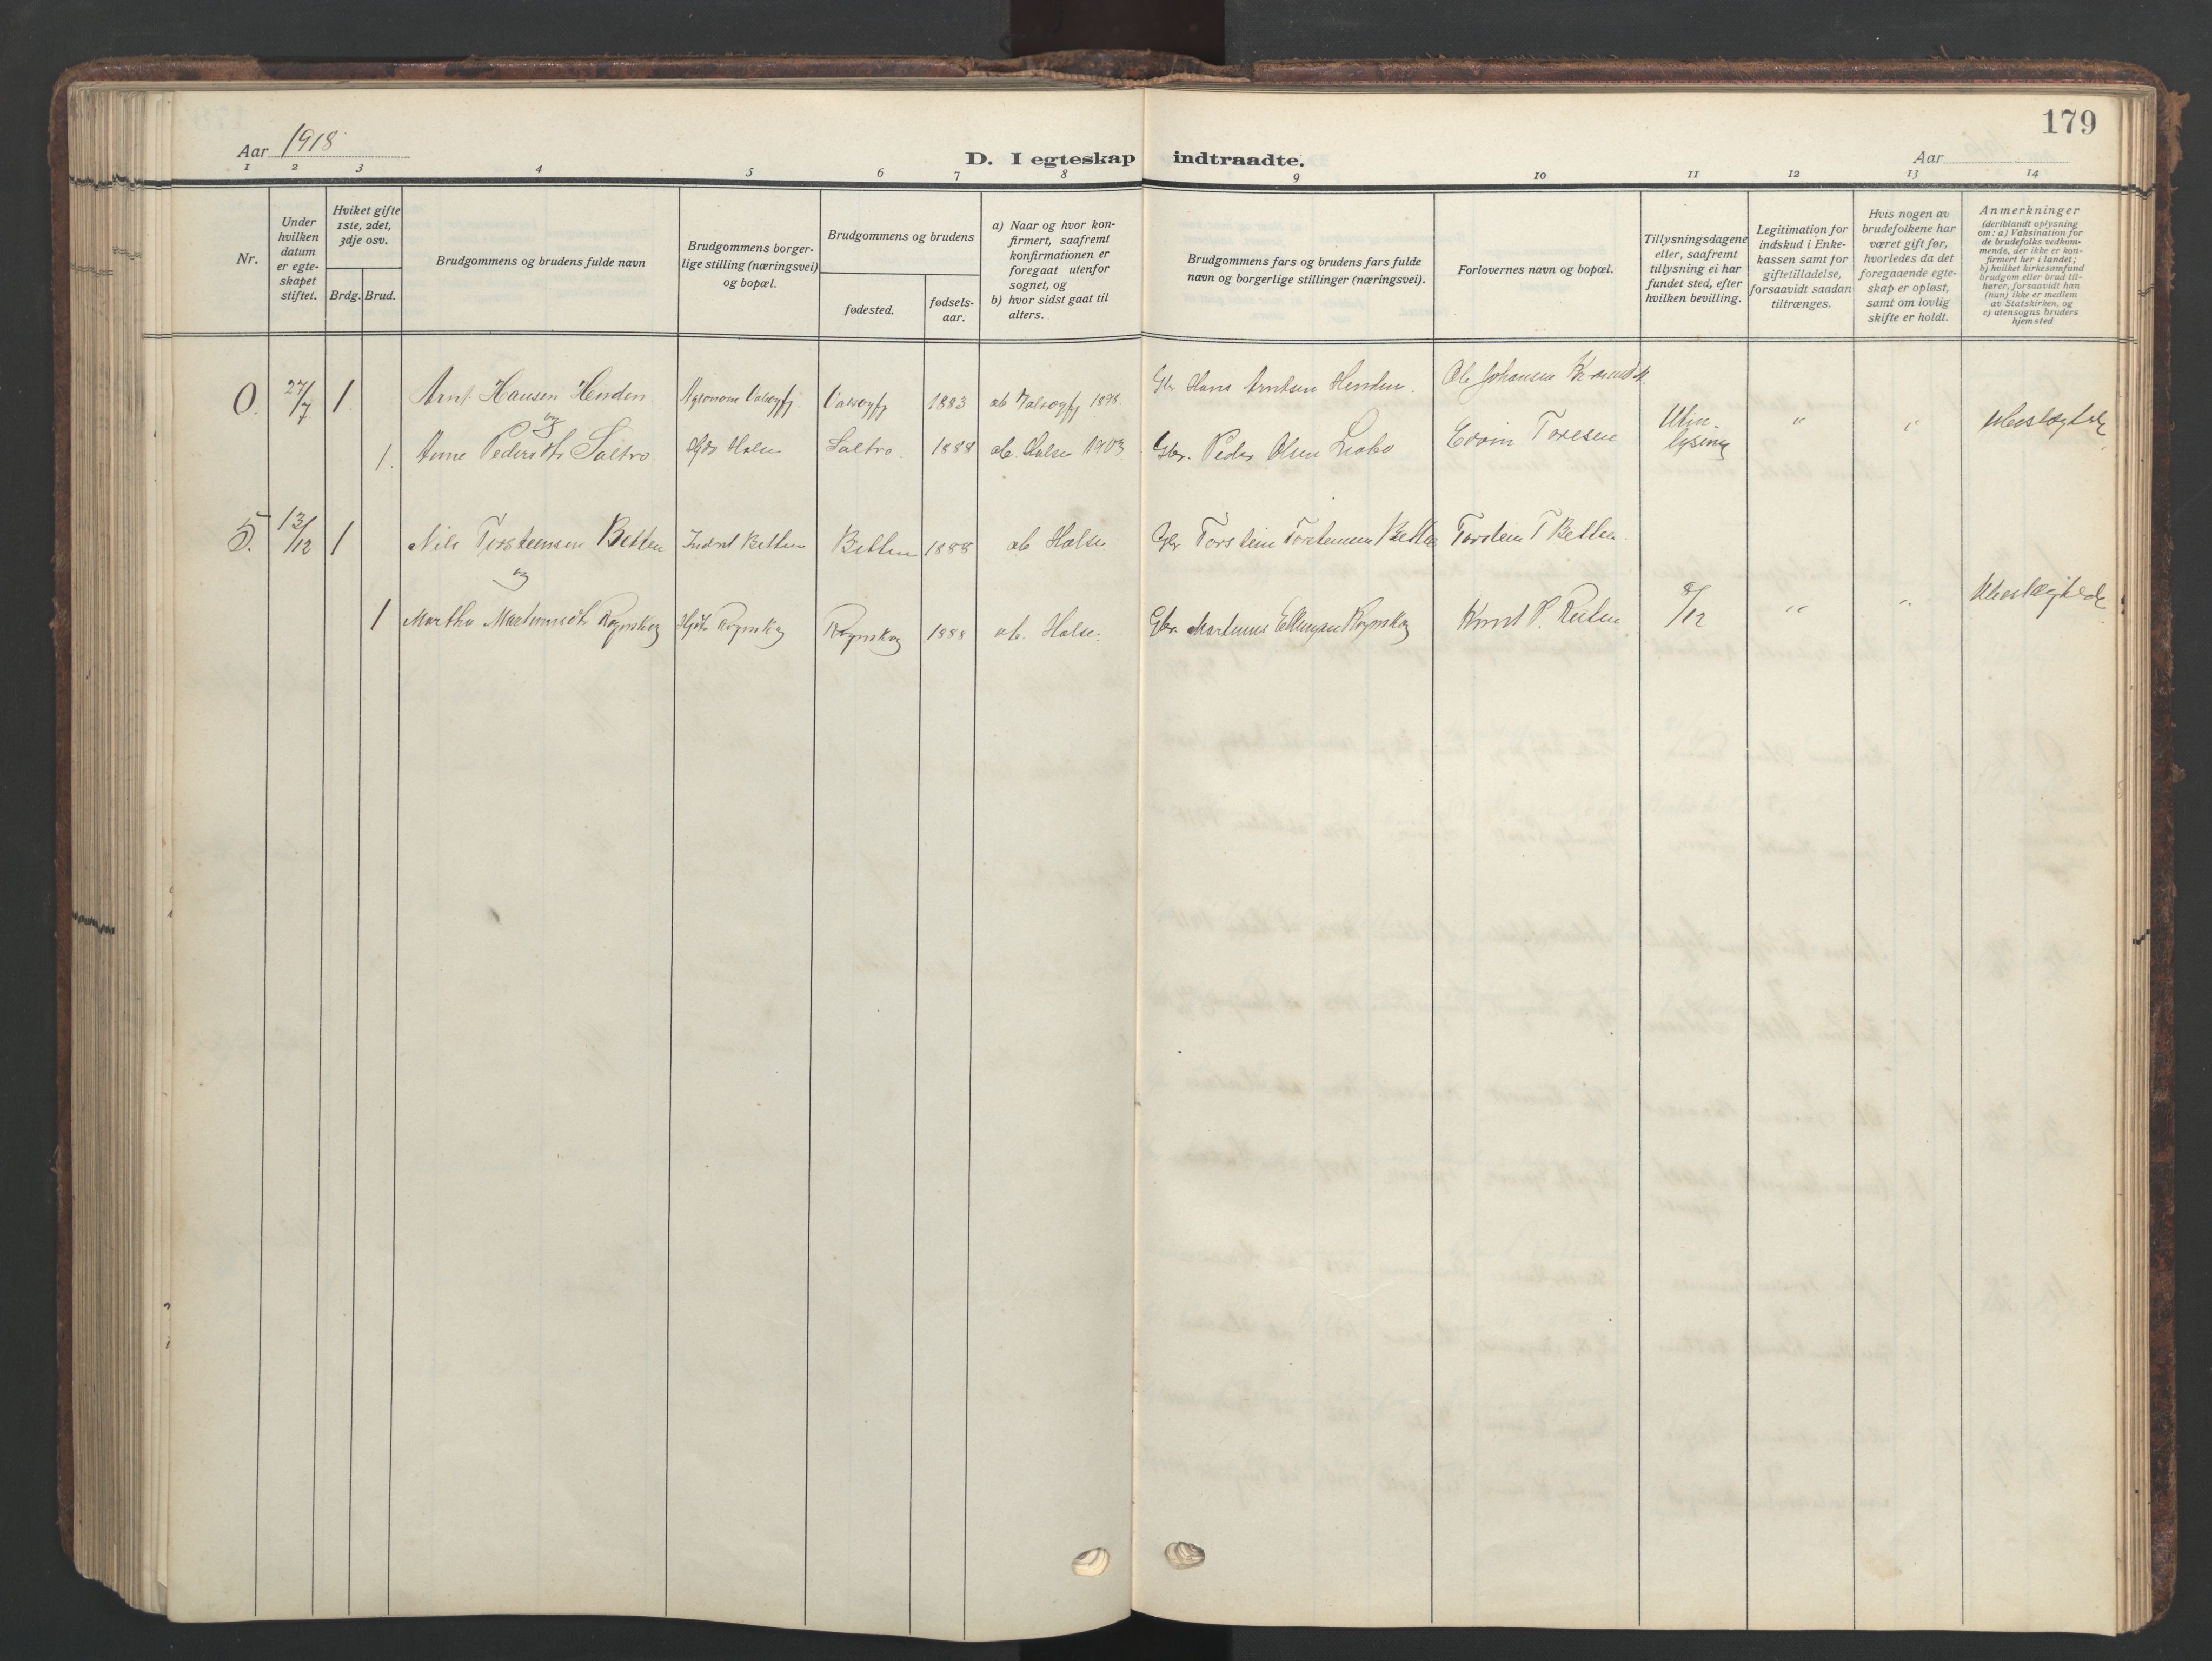 179
Aar 1918
D. I egteskap indtraadte.
Aar
1 2 3 4 5 6 7 8 9 10 11 12 13 14
Nr.
Under
hvilken
datum
er egte-
skapet
stiftet.
Hviket gifte
1ste, 2det,
3dje osv.
Brdg. Brud.
Brudgommens og brudens fulde navn
Brudgommens borger-
lige stilling (næringsvei)
og bopæl.
Brudgommens og brudens
fødested.
fødsels-
aar.
a) Naar og hvor kon-
firmert, saafremt
konfirmationen er
foregaat utenfor
sognet, og
b) hvor sidst gaat til
alters.
Brudgommens fars og brudens fars fulde
navn og borgerlige stillinger (næringsvei).
Forlovernes navn og bopæl.
Tillysningsdagene
eller, saafremt
tillysning ei har
fundet sted, efter
hvilken bevilling.
Legitimation for
indskud i Enke-
kassen samt for
giftetilladelse,
forsaavidt saadan
tiltrænges.
Hvis nogen av
brudefolkene har
været gift før,
hvorledes da det
foregaaende egte-
skap er opløst,
samt om lovlig
skifte er holdt.
Anmerkninger
(deriblandt oplysning
om: a) Vaksination for
de brudefolks vedkom-
mende, der ikke er kon-
firmert her i landet;
b) hvilket kirkesamfund
brudgom eller brud til-
hører, forsaavidt han
(hun) ikke er medlem
av Statskirken, og
c) utensogns bruders
hjemsted
0. 27/7. 1. Arnt Hansen Henden Agronom Valsøyfj. Valsøyfj 1883 ab Valsøyfj 1898. Gbr Hans Arntsen Henden. Ole Johansen
og
1. Anne Pedersdtr Saltrø. Halse Saltrø. 1888 ab. Halse 1903. Gbr. Peder Olsen Edvin Toresen Utlin- lysning " " Ubeslægtede
5. 13/12 1 Nils Torsteinsen Betten Indrst Betten Betten 1888 ab Halse Gbr Torstein Torsteinsen Betten Torstein T Betten.
og
1 Martha Martinusdtr Rognskog Rognskog Rognskog 1888 ab. Halse. Gbr. Martinus Ellingsen Rognskog Knut P. 8/12 " " Ubeslægtede